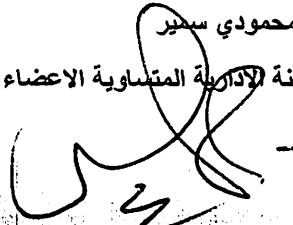 محمودي سمير
نة الادارية المتساوية الاعضاء